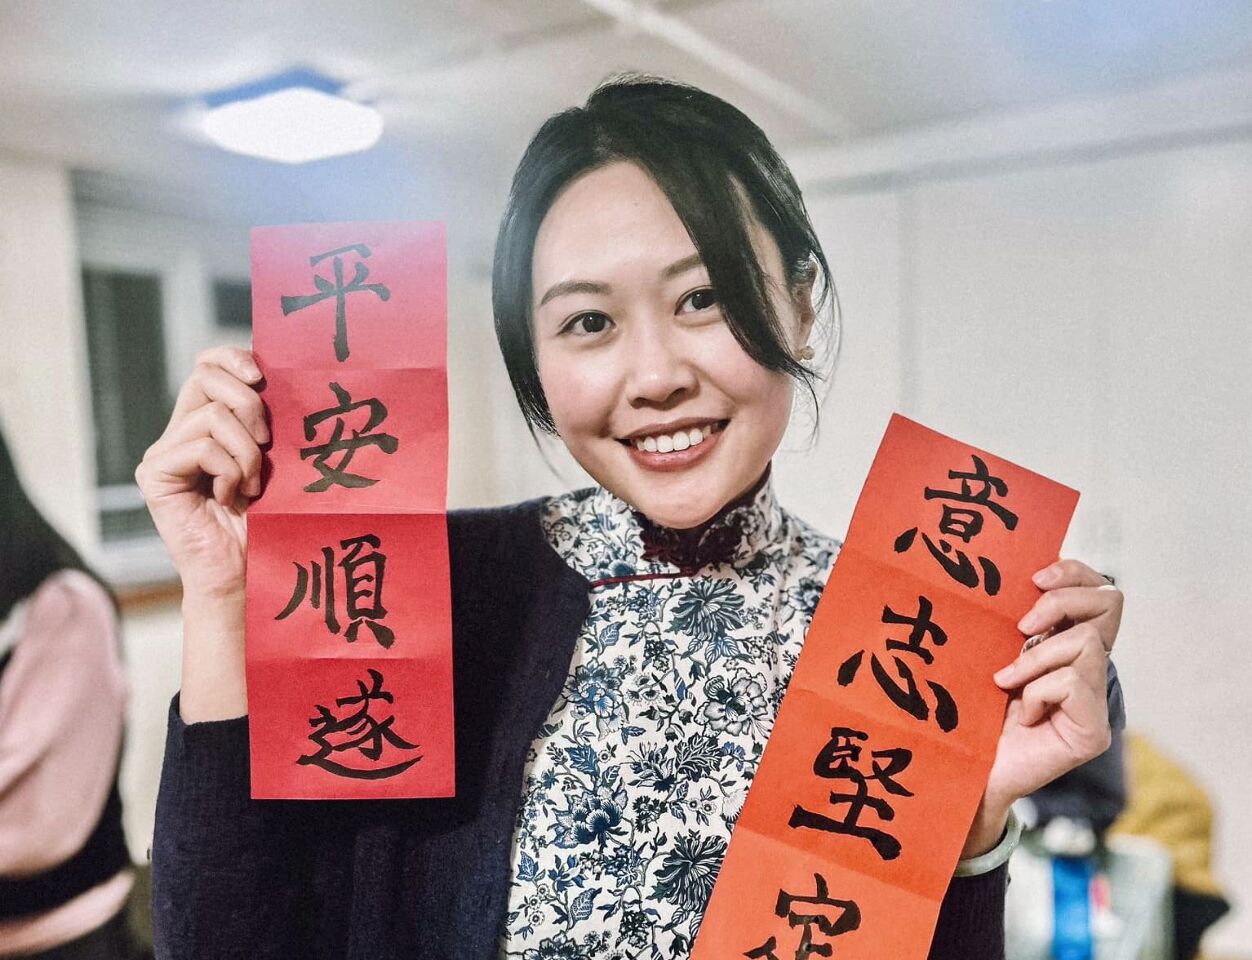 平安順遂
意志堅定